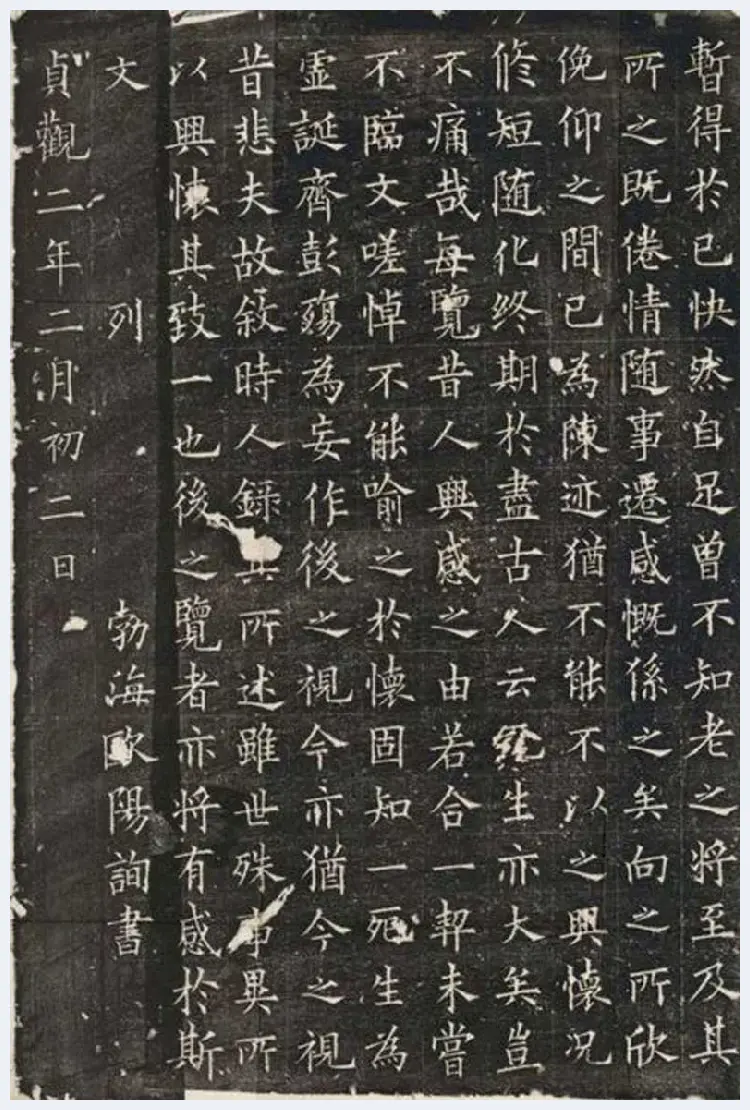 暫得於已快然自足曾不知老之將至及其
所之既倦情随事遷感慨係之矣向之所欣
俛仰之間已為陳迹猶不能不以之興懷况
修短随化终期於盡古人云死生亦大矣豈
不痛哉每覽昔人興感之由若合一契未嘗
不臨文嗟悼不能喻之於懷固知一死生為
虛誕齊彭殤為妄作後之視今亦猶今之視
昔悲夫故叙時人録其所述雖世殊事異所
以興懷其致一也後之覽者亦將有感於斯
文 列 勃海歐陽詢書
貞觀二年二月初二日